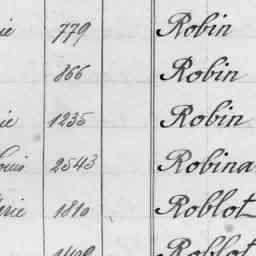 ie 779 Robin
866 Robin
ie 1235 Robin
ouis 2543 Robina
rie 1810 Roblot
Roblot